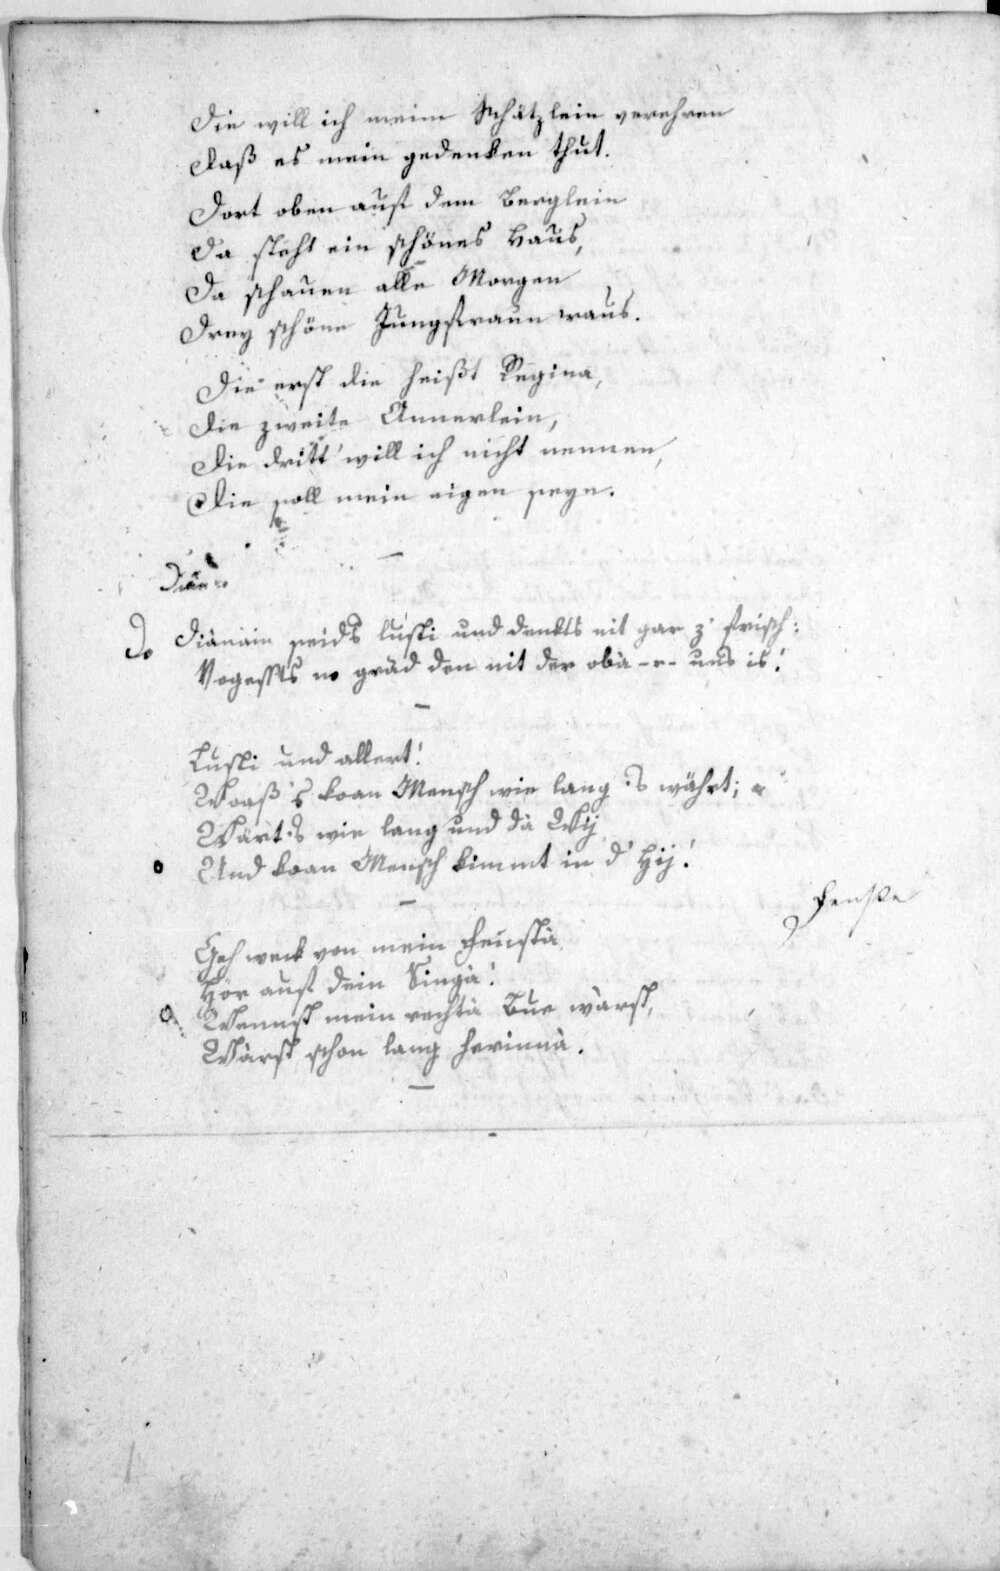 Die will ich meim Schätzlein verehren
Daß es mein gedenken thut.
Dort oben auf dem Berglein
Da steht ein schönes Haus,
Da schauen alle Morgen
Drey schöne Jungfraun raus.
Die erst die heißt Regina,
Die zweite Annerlein,
Die dritt' will ich nicht nennen,
Die soll mein eigen seyn.
Diànàin seids lusti und denkts nit gar z' frisch:
Vogeßts no gràd den nit der obà -r- uns is!
Lusti und allert!
Woaß's koan Mensch wie lang 's währt;
Währt 's wie lang und dà Wij
Und koan Mensch kimmt in d' Hij!
Fenste
Geh weck von mein Fenstà
Hör auf dein Singà!
Wennst mein rechtà Bue wàrst,
Wàrst schon lang herinnà.